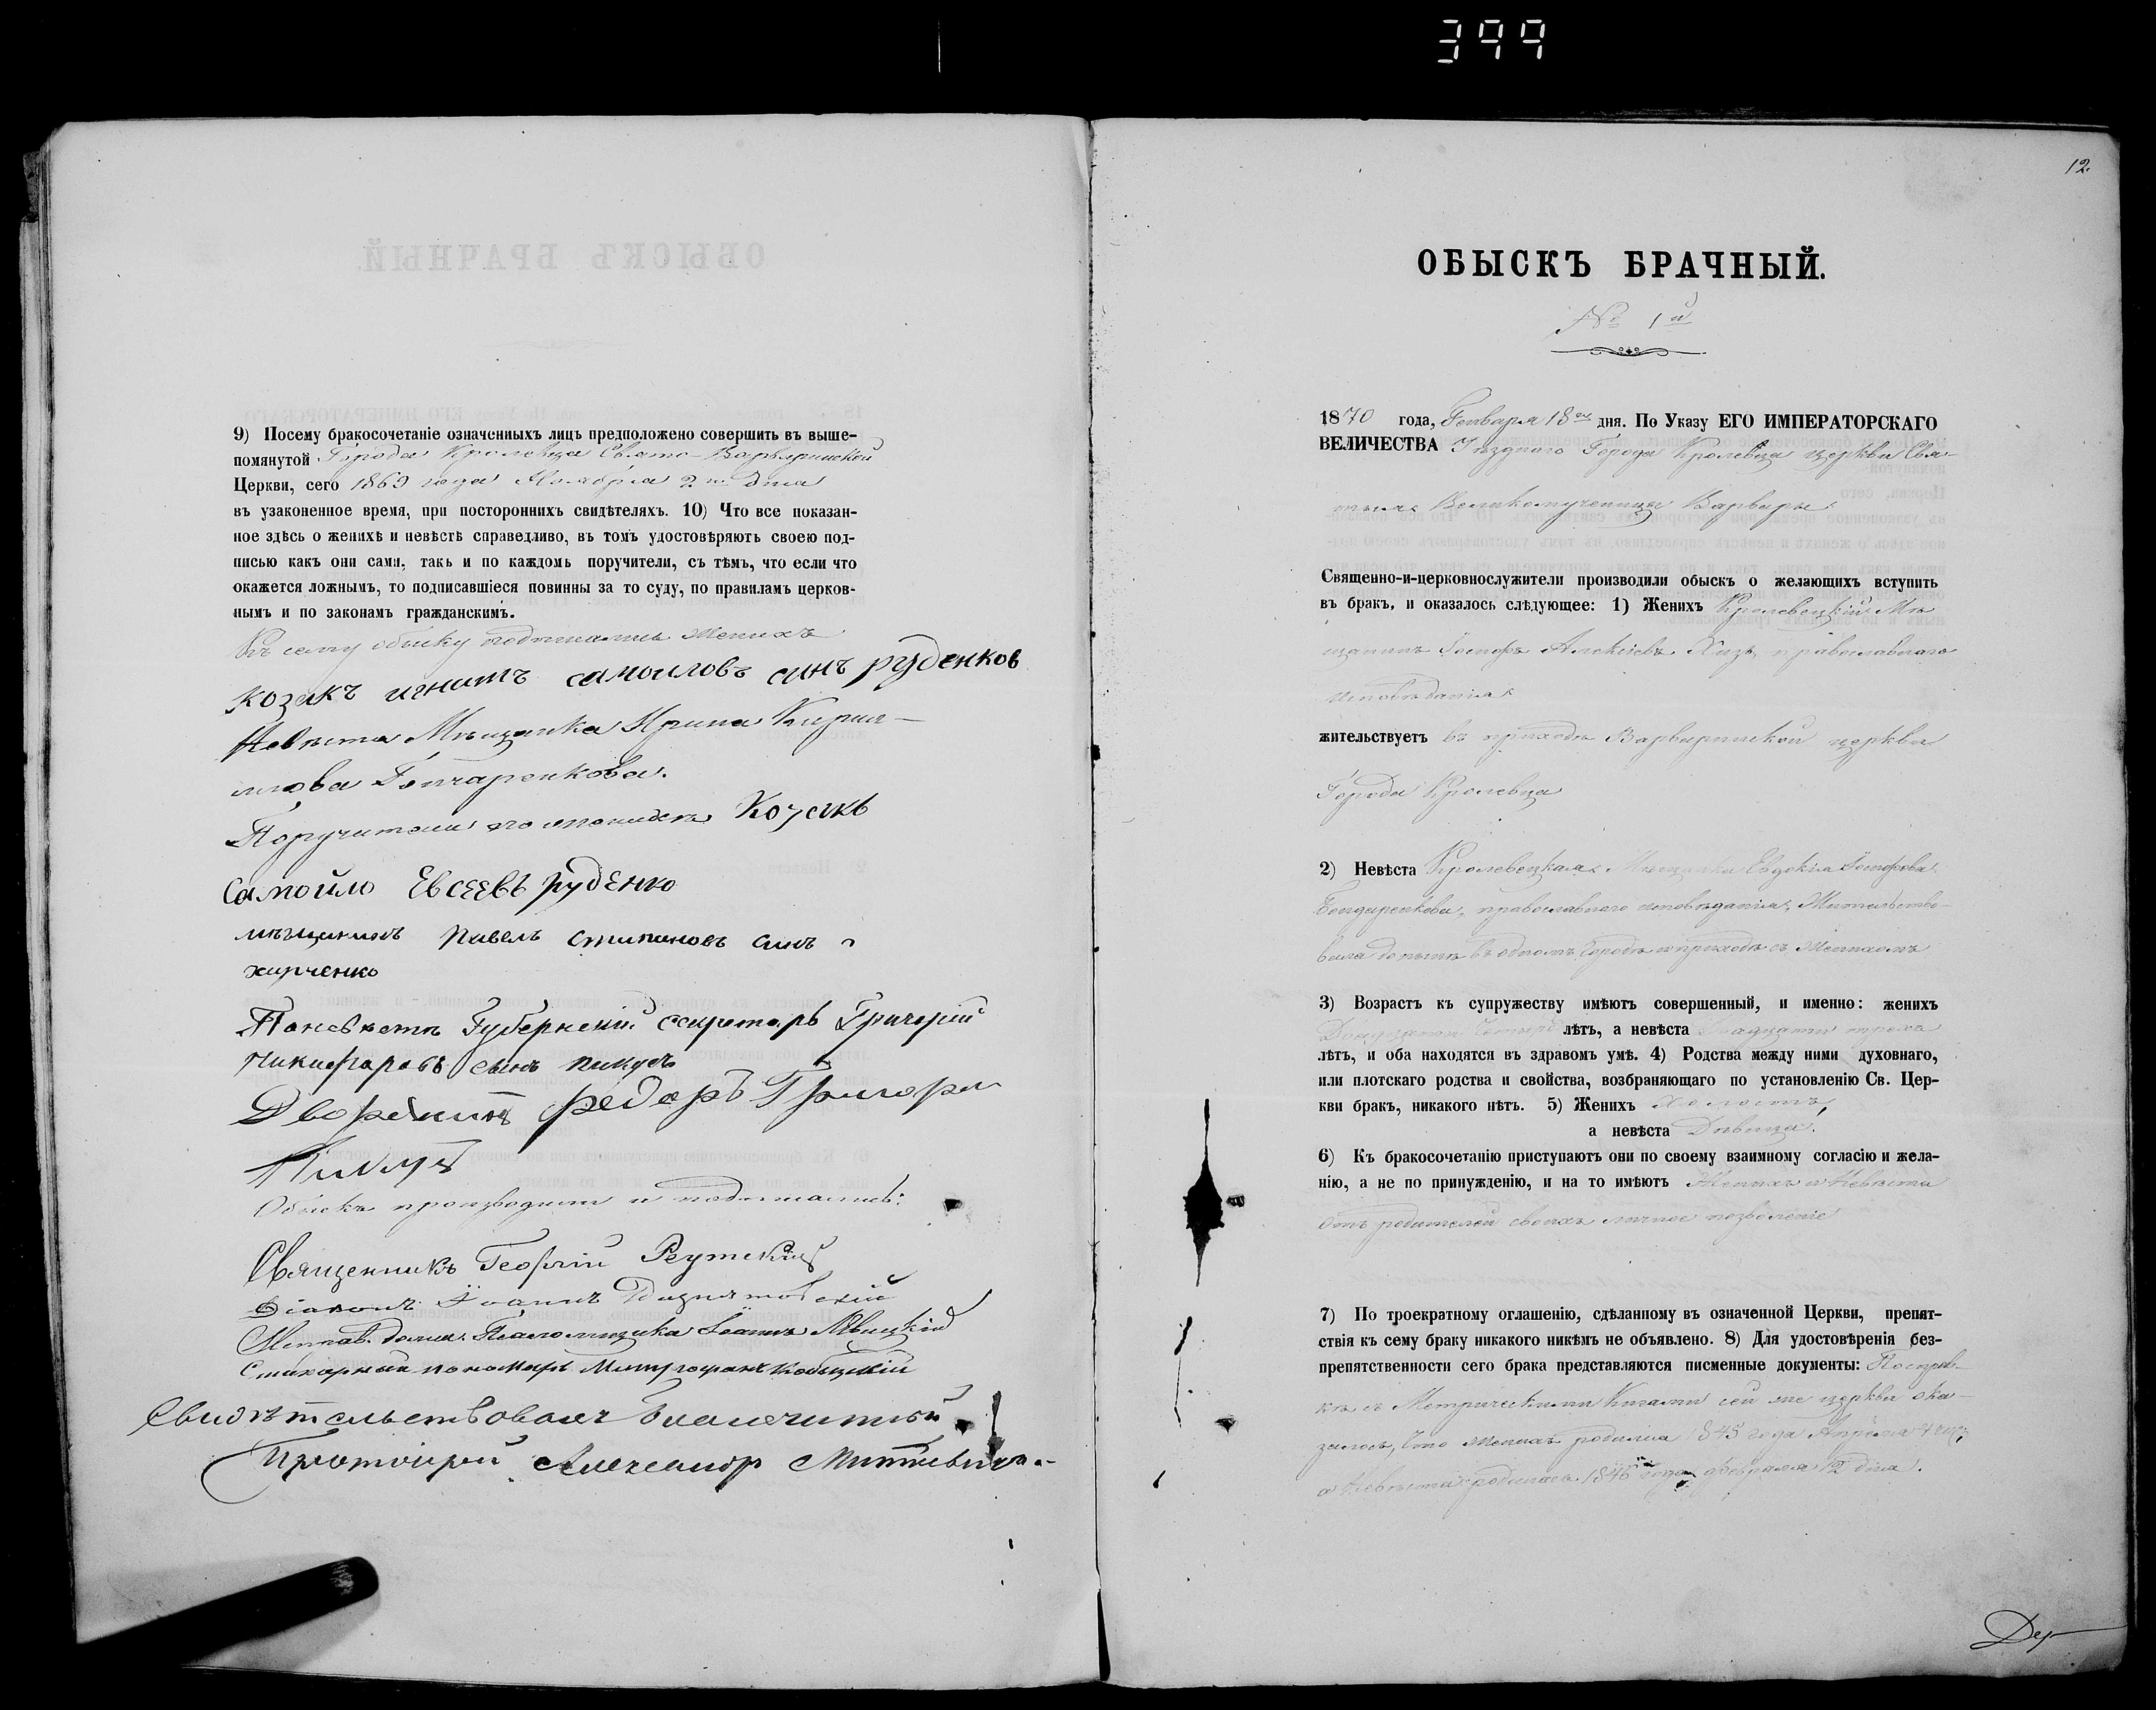 399
9) Посему бракосочетаніе означенныхъ лицъ предположено совершить въ выше-
помянутой Города Кролевца Свято-Варваринской
Церкви, сего 1869 года Ноября 2 го дня
въ узаконенное время, при постороннихъ свидѣтеляхъ. 10) Что все показан-
ное здѣсь о женихѣ и невѣстѣ справедливо, въ томъ удостовѣряютъ своею под-
писью какъ они сами, такъ и по каждомъ поручители, съ тѣмъ, что если что
окажется ложнымъ, то подписавшіеся повинны за то суду, по правиламъ церков-
нымъ и по законамъ гражданскимъ.
Къ сему обыску подписались женихъ
козакъ игнатъ самоиловъ синъ руденков
Невѣста Мѣщанка Ирина Кирил-
лова Гончаренкова.
Поручители по женихѣ Козакъ
Самойло Евсеевъ руденко
мѣщанинъ павелъ степановъ синъ
харченко
По невѣсте Губернскій секретарь Григорій
никифоровъ сынъ
Дворянинъ федоръ Григорев
Обыскъ производили и подписались:
Священникъ Георгій Реутскій
Діаконъ Іоаннъ
Исправ. долж. Псаломщика Іоаннъ Явицкій
Стихарный пономарь Митрофанъ
Свидѣтельствовалъ Благочинный
Протоіерей Александр
12.
ОБЫСКЪ БРАЧНЫЙ.
№ 1й
1870 года, Генваря 18го дня. По Указу ЕГО ИМПЕРАТОРСКАГО
ВЕЛИЧЕСТВА Уѣзднаго Города Кролевца церкви Свя-
тыя Великомученицы Варвары
Священно-и-церковнослужители производили обыскъ о желающихъ вступить
въ бракъ, и оказалось слѣдующее: 1) Женихъ Кролевецкій Мѣ
щанинъ Іосифъ Алексіевъ православнаго
исповѣданія
жительствуетъ въ приходѣ Варваринской церкви
Города Кролевца
2) Невѣста Кролевецкая Мѣщанка Евдокія Іосифова
Бондаренкова, православнаго исповѣданія, Жительство-
вала донынѣ въ одномъ Городѣ и приходѣ съ Женихомъ
3) Возрастъ къ супружеству имѣютъ совершенный, и именно: женихъ
Двадцати четырехъ лѣтъ, а невѣста Двадцати трехъ
лѣтъ, и оба находятся въ здравомъ умѣ. 4) Родства между ними духовнаго,
или плотскаго родства и свойства, возбраняющаго по установленію Св. Цер-
кви бракъ, никакого нѣтъ. 5) Женихъ Холостъ,
а невѣста Дѣвица.
6) Къ бракосочетанію приступаютъ они по своему взаимному согласію и жела-
нію, а не по принужденію, и на то имѣютъ Женихъ и Невѣста
отъ родителей своихъ личное позволеніе
7) По троекратному оглашенію, сдѣланному въ означенной Церкви, препят-
ствія къ сему браку никакого никѣмъ не объявлено. 8) Для удостовѣренія без-
препятственности сего брака представляются писменные документы: По справ-
кѣ съ Метрическими Книгами сей же церкви ока-
залось, что женихъ родился 1845 года Апрѣля 4 чис,
а Невѣста родилась 1846 года февраля 12 дня.